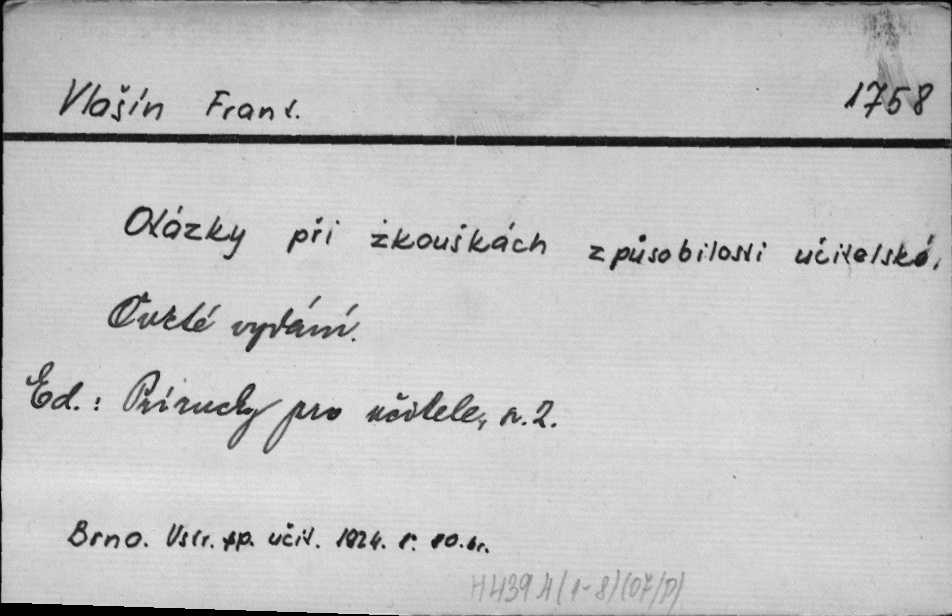 Vlašín Frant. 1758
Otázky při zkouškách způsobilosti učitelské,
Čvrté vydání.
Ed.: Příručky pro učitele, s.2.
Brno. Ústr. sp. učit. 1924. 8°. 80.str.
H439A(1-8)(07/D)